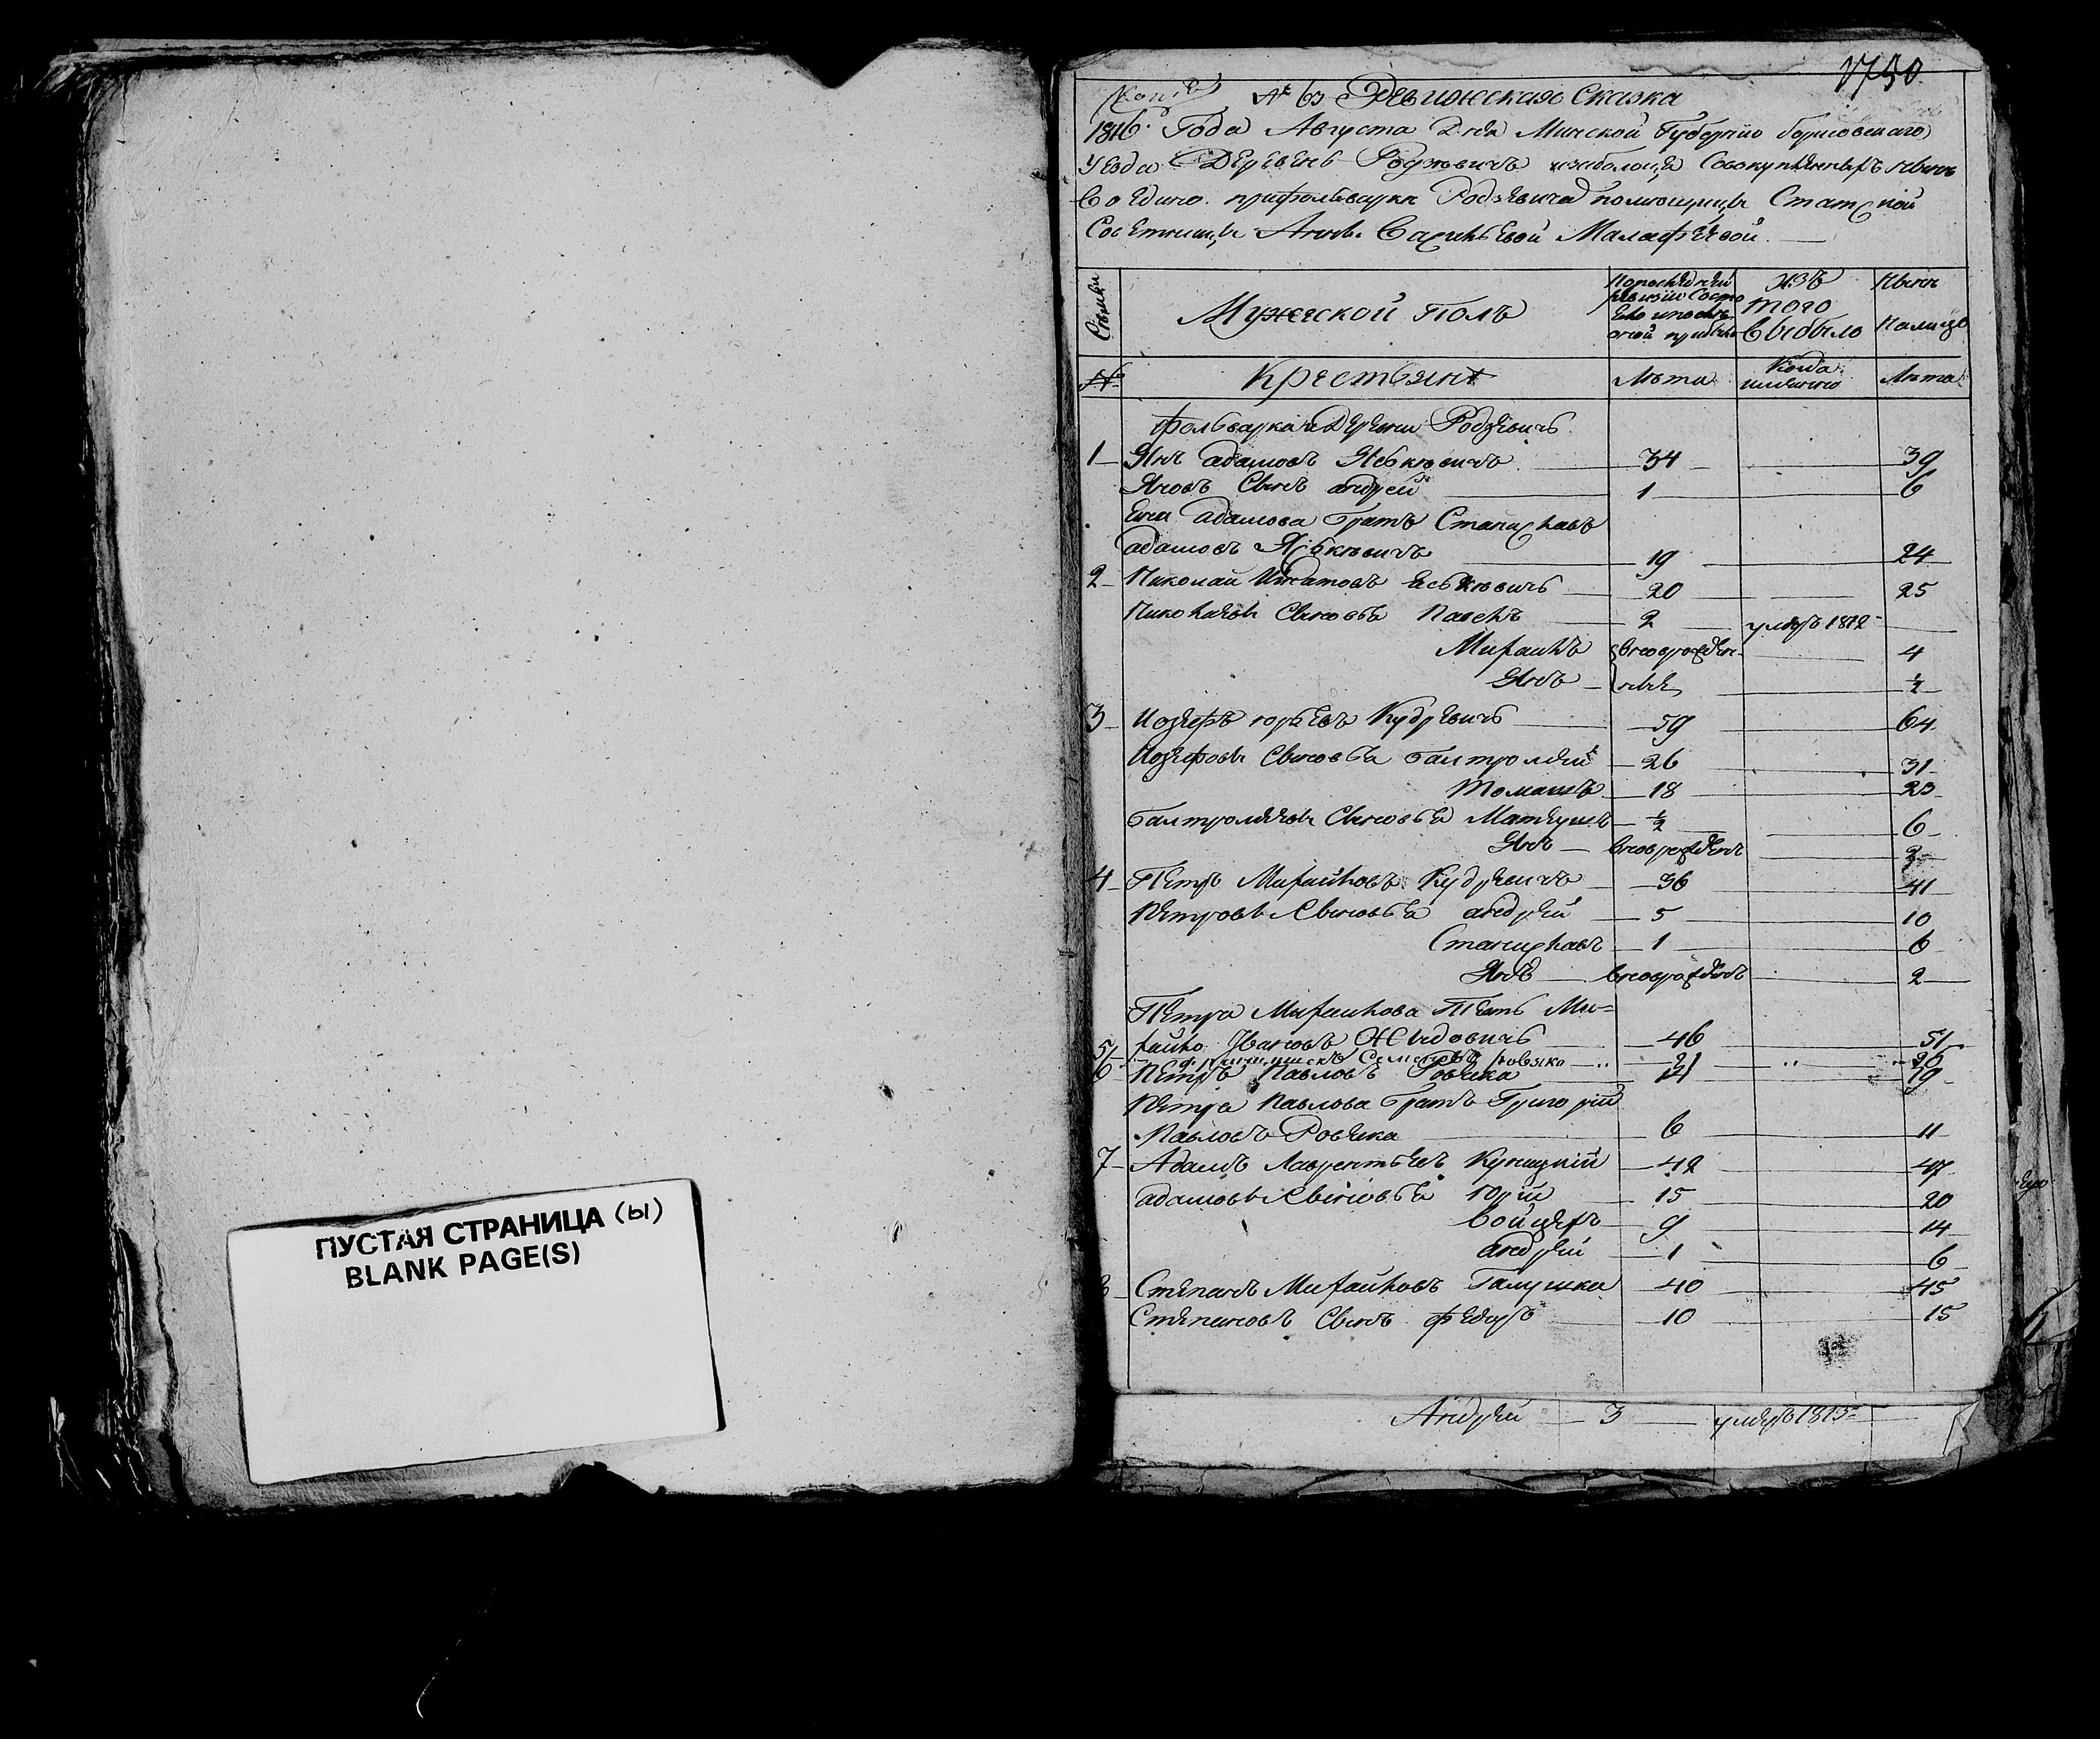 ПУСТАЯ СТРАНИЦА (ы)
BLANK PAGE(S)
1750
Копія № 63 Ревижская Сказка
1816. Года Августа Дня Минской Губерніи борисовскаго
Уезда Деревень Родзевичъ изаболоця Совокупленныхъ нынъ
Воедино. прифольварки Родзевичахъ помещицы Статской
Советницы Анны Васильевой Малафѣевой.
Семьи Мужеской Полъ Попоследней ревизіи Состояло ипослѣ оной прибыло Изъ того Выбыло Нынѣ Налицо
№ Крестьянѣ Лѣта Когда имянно Лѣта
фольварка и Деревни Родзевичъ
1 Янъ адамовъ Яськевичъ 34 39
Яновъ Сынъ андрей 1 6
Яна адамова Братъ Станиславъ
адамовъ Яськевичъ 19 24
2 Николай Игнатовъ Еськевичъ 20 25
Николаевы Сыновья Павелъ 2 умеръ 1812
Михайлъ вновьрожден- 4
Янъ ные ½
3 Иозефъ юрьевъ Кудревичъ 59 64
Иозефовы Сыновья Балтромей 26 31
Томашъ 18 23
Балтромеевы Сыновья Матеушъ ½ 6
Янъ вновьрожденъ 2
4 Петръ Михайловъ Кудревичъ 36 41
Петровы Сыновья андрей 5 10
Станиславъ 1 6
Янъ вновьрожденъ 2
Петра Михайлова Тесть Ми=
хайло Ивановъ Жидовичъ 46 51
5 Семеновъ Ровячко 21 " 26
6 Петръ Павловъ Ровячка 14 19
Петра Павлова Братъ Григорій
Павловъ Ровячка 6 11
7 Адамъ Лаврентьевъ Куницкій 42 47
адамовы Сыновья Юрій 15 20
Войцехъ 9 14
андрей 1 6
Степанъ Михайловъ Галушка 40 45
Степановъ Сынъ федоръ 10 15
Андрей 3 умеръ 1815